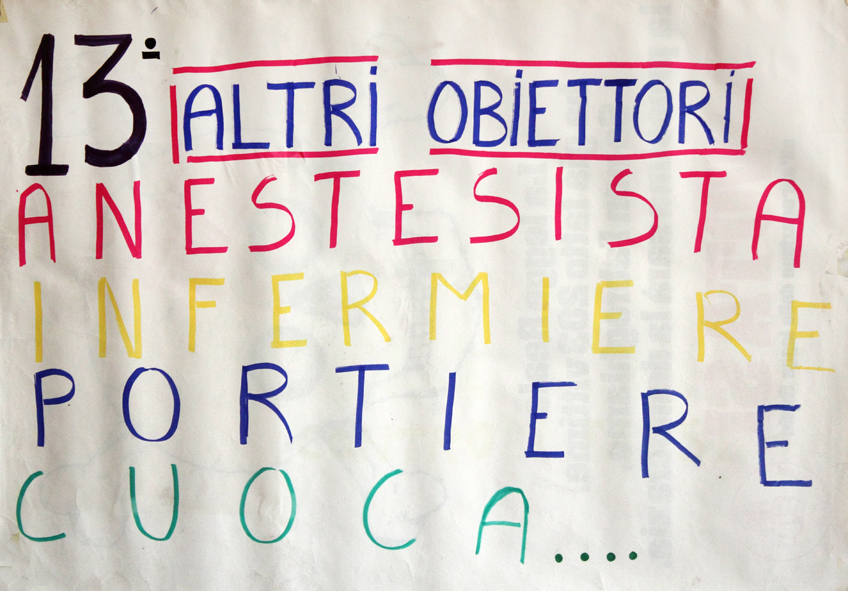 13° ALTRi OBiETTORi
ANESTESISTA
INFERMIERE
PORTIERE
CUOCA....